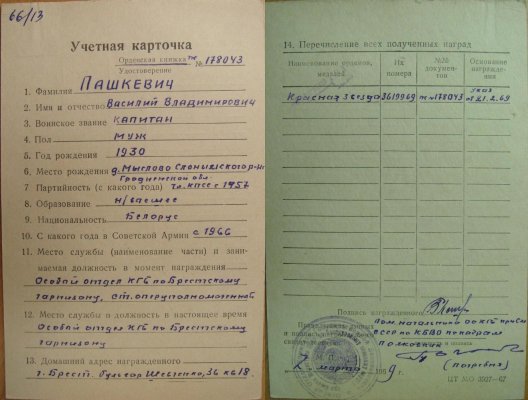 66/13
Учетная карточка
Орденская книжка тм № 178043
Удостоверение
1. Фамилия ПАШКЕВИЧ
2. Имя и отчество Василий Владимирович
3. Воинское звание КАПИТАН
4. Пол муж
5. Год рождения 1930
6. Место рождения д. Мыслово Слонимского р-на
Гродненской обл.
7. Партийность (с какого года) чл. КПСС с 1957
8. Образование н/высшее
9. Национальность Белорус
10. С какого года в Советской Армии с 1966
11. Место службы (наименование части) и зани-
маемая должность в момент награждения
Особый отдел КГБ по Брестскому
гарнизону, ст. оперуполномоченный
12. Место службы и должность в настоящее время
Особый отдел КГБ по Брестскому
гарнизону
13. Домашний адрес награжденного
г. Брест. бульвар Шевченко, 36 кв 18.
14. Перечисление всех полученных наград
Наименование орденов, медалей
Их номера
№№ документов
Основание награждения
Красная Звезда 3619969 тм №178043 Указ от 21.2.69
Подпись награжденного
Правильность данных
и подпись награжденного
Пом. начальника
ССР по КБВО по кадрам
полковник
2 марта 1969 г.
ЦТ МО 3507—67